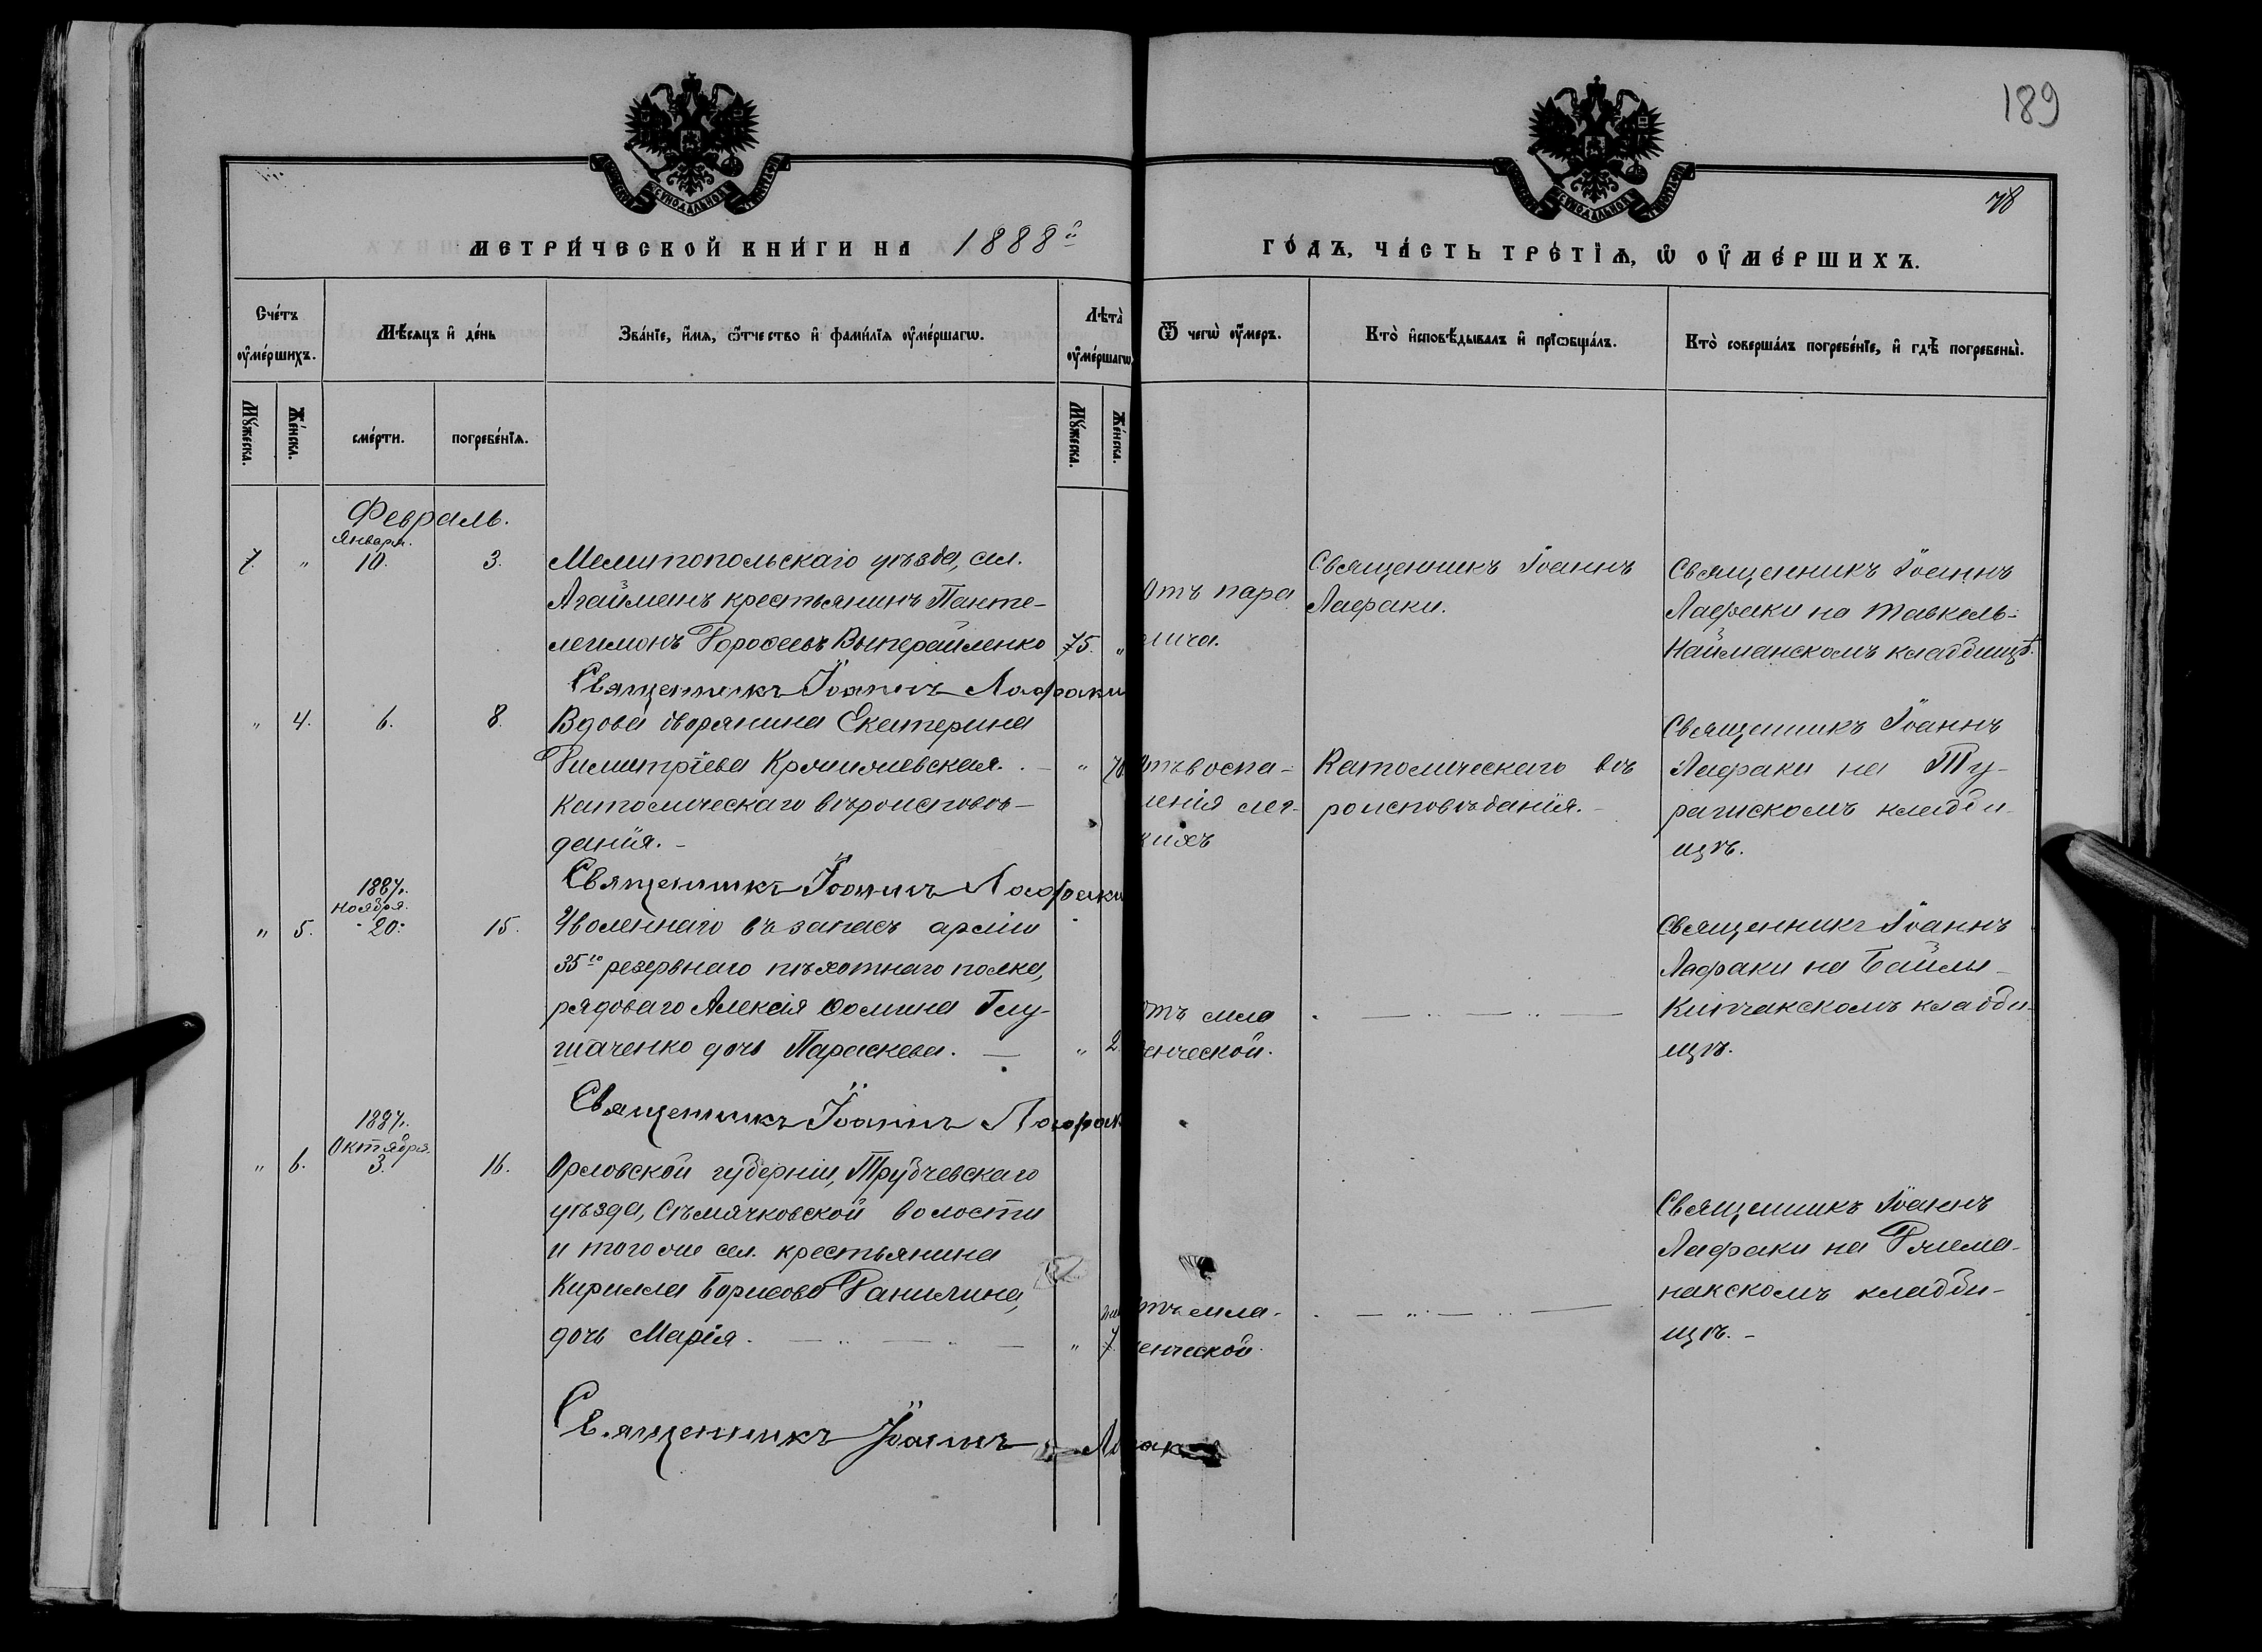 189
78
МЕТРИ́ЧЕСКОЙ КНИ́ГИ НА 1888й
ГО́ДЪ, ЧА́СТЬ ТРЕ́ТІѦ, Ѡ ОУ҆МЕ́РШИХЪ.
Сче́тъ оу҆ме́ршихъ.
Мѣ́сяцъ и҆ де́нь
Зва́нїе, и҆́мѧ, ѻ҆́тчество и҆ фами́лїѧ оу҆ме́ршагѡ.
Лѣта̀ оу҆ме́ршагѡ
Ѿ чегѡ̀ оу҆́меръ.
Кто̀ и҆сповѣ́дывалъ и҆ прїѡбща́лъ.
Кто̀ соверша́лъ погребе́нїе, и҆ гдѣ̀ погребены̀.
Мꙋ́жеска.
Же́нска.
сме́рти.
погребе́нїѧ.
Мꙋ́жеска.
Же́нска.
Февраль.
Января.
7. " 10. 3.
Мелитопольскаго уѣзда, сел.
Агайменъ крестьянинъ Панте-
леимонъ Дорофеевъ 75. "
Отъ пара
лича.
Священникъ Іоаннъ
Лафаки.
Священникъ Іоаннъ
Лафаки на Тавкель-
Найманскомъ кладбищѣ.
Священникъ Іоаннъ Лафаки
" 4. 6. 8.
Вдова дворянина Екатерина
Димитріева "
Католическаго вѣроисповѣ-
данія.-
Отъ воспа-
ленія лег-
кихъ
Католическаго вѣ
роисповѣданія.-
Священникъ Іоаннъ
Лафаки на
кладби-
щѣ.
Священникъ Іоаннъ Лафаки
1887г.
Ноября.
" 5. 20. 15.
Уволеннаго въ запасъ арміи
35го резервнаго пѣхотнаго полка,
рядоваго Алексія Фомина Глу-
щаченко дочь Параскева. " 2.
Отъ мла
денческой.
Священникъ Іоаннъ
Лафаки на Башлы-
Кипчакскомъ кладби-
щѣ.
Священникъ Іоаннъ Лафаки
1887г.
Октября.
" 6. 3. 16.
Орловской губерніи, Трубчевскаго
уѣзда, Сѣмячковской волости
и того же сел. крестьянина
Кирилла Борисова Данилина,
дочь Марія. " 7.
Отъ мла-
денческой.
Священникъ Іоаннъ
Лафаки на
кладби-
щѣ.-
Священникъ Іоаннъ Лафаки